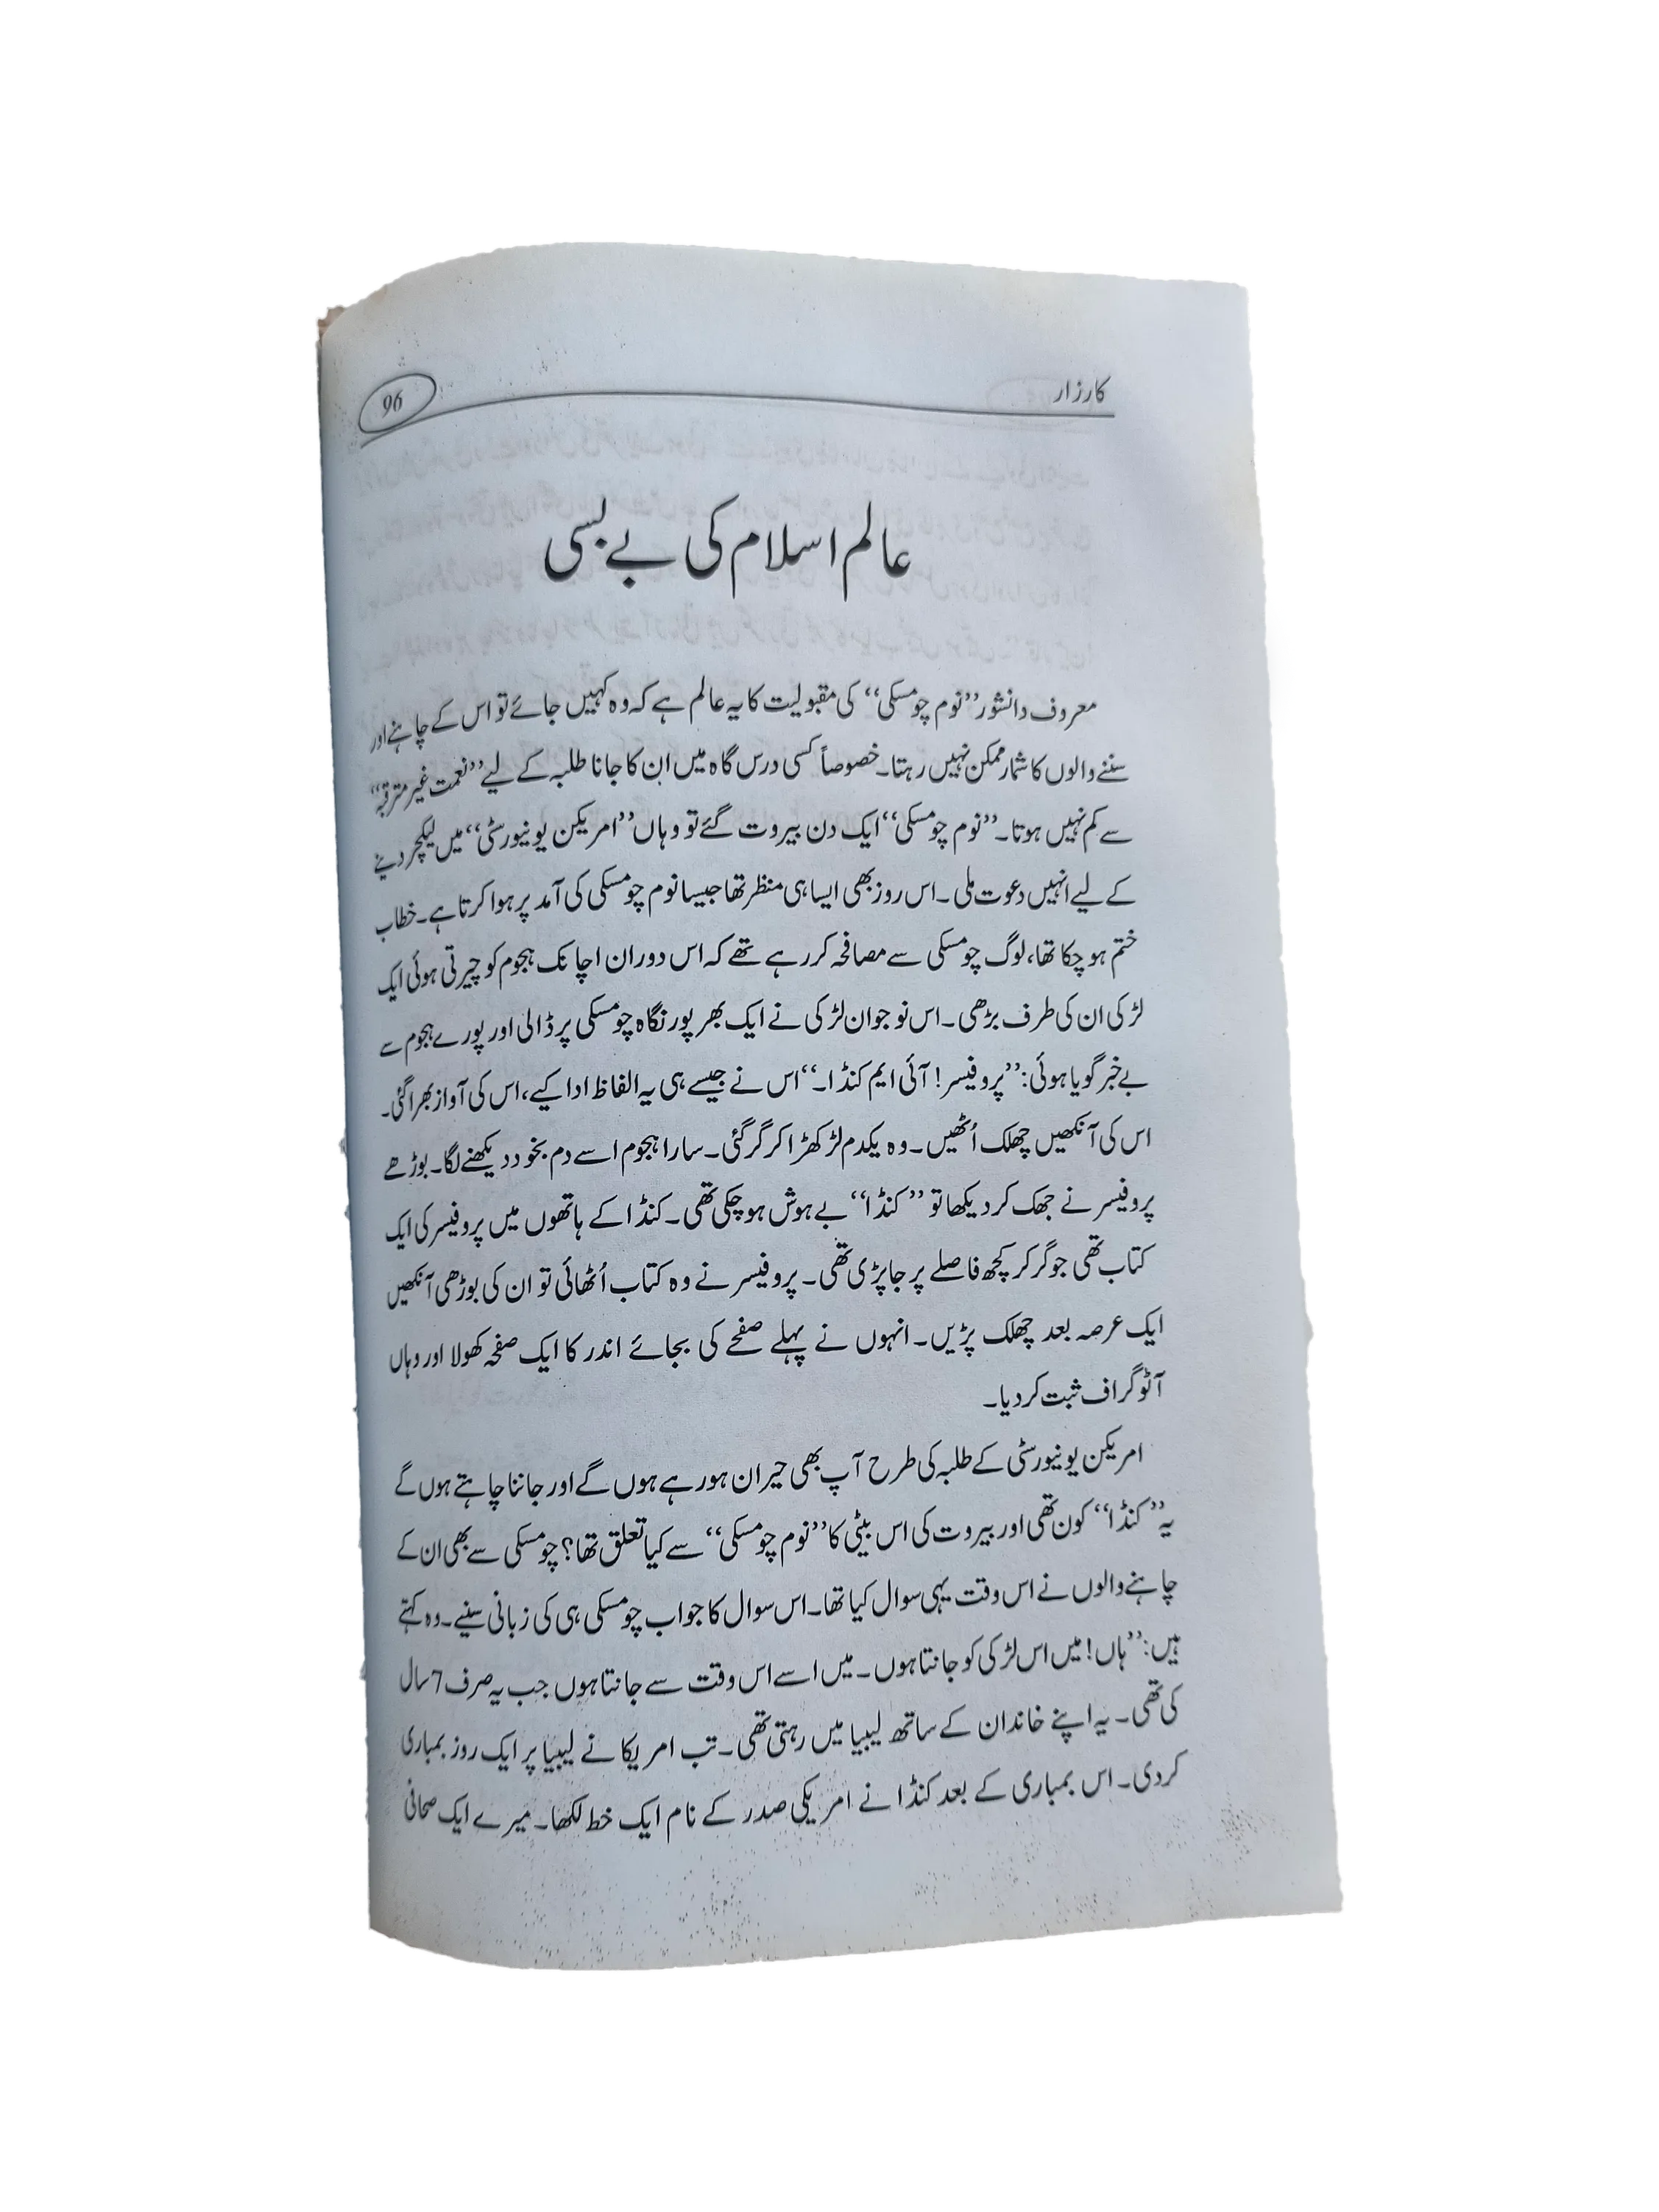 کارزار
96
عالم اسلام کی بے بسی
معروف دانشور ”نوم چومسکی“ کی مقبولیت کا یہ عالم ہے کہ وہ کہیں جائے تو اس کے چاہنے اور
سننے والوں کا شمار ممکن نہیں رہتا۔ خصوصاً کسی درس گاہ میں ان کا جانا طلبہ کے لیے ”نعمت غیر مترقبہ“
سے کم نہیں ہوتا۔ ”نوم چومسکی“ ایک دن بیروت گئے تو وہاں ”امریکن یونیورسٹی“ میں لیکچر دینے
کے لیے انہیں دعوت ملی۔ اس روز بھی ایسا ہی منظر تھا جیسا نوم چومسکی کی آمد پر ہوا کرتا ہے۔ خطاب
ختم ہو چکا تھا، لوگ چومسکی سے مصافحہ کر رہے تھے کہ اس دوران اچانک ہجوم کو چیرتی ہوئی ایک
لڑکی ان کی طرف بڑھی۔ اس نوجوان لڑکی نے ایک بھرپور نگاہ چومسکی پر ڈالی اور پورے ہجوم سے
بے خبر گویا ہوئی: ”پروفیسر! آئی ایم کنڈا۔“ اس نے جیسے ہی یہ الفاظ ادا کیے، اس کی آواز بھرا گئی۔
اس کی آنکھیں چھلک اُٹھیں۔ وہ یکدم لڑکھڑا کر گر گئی۔ سارا ہجوم اسے دم بخود دیکھنے لگا۔ بوڑھے
پروفیسر نے جھک کر دیکھا تو ”کنڈا“ بے ہوش ہو چکی تھی۔ کنڈا کے ہاتھوں میں پروفیسر کی ایک
کتاب تھی جو گر کر کچھ فاصلے پر جا پڑی تھی۔ پروفیسر نے وہ کتاب اُٹھائی تو ان کی بوڑھی آنکھیں
ایک عرصہ بعد چھلک پڑیں۔ انہوں نے پہلے صفحے کی بجائے اندر کا ایک صفحہ کھولا اور وہاں
آٹوگراف ثبت کر دیا۔
امریکن یونیورسٹی کے طلبہ کی طرح آپ بھی حیران ہو رہے ہوں گے اور جاننا چاہتے ہوں گے
یہ ”کنڈا“ کون تھی اور بیروت کی اس بیٹی کا ”نوم چومسکی“ سے کیا تعلق تھا؟ چومسکی سے بھی ان کے
چاہنے والوں نے اس وقت یہی سوال کیا تھا۔ اس سوال کا جواب چومسکی ہی کی زبانی سنیے۔ وہ کہتے
ہیں: ”ہاں! میں اس لڑکی کو جانتا ہوں۔ میں اسے اس وقت سے جانتا ہوں جب یہ صرف 7 سال
کی تھی۔ یہ اپنے خاندان کے ساتھ لیبیا میں رہتی تھی۔ تب امریکا نے لیبیا پر ایک روز بمباری
کر دی۔ اس بمباری کے بعد کنڈا نے امریکی صدر کے نام ایک خط لکھا۔ میرے ایک صحافی